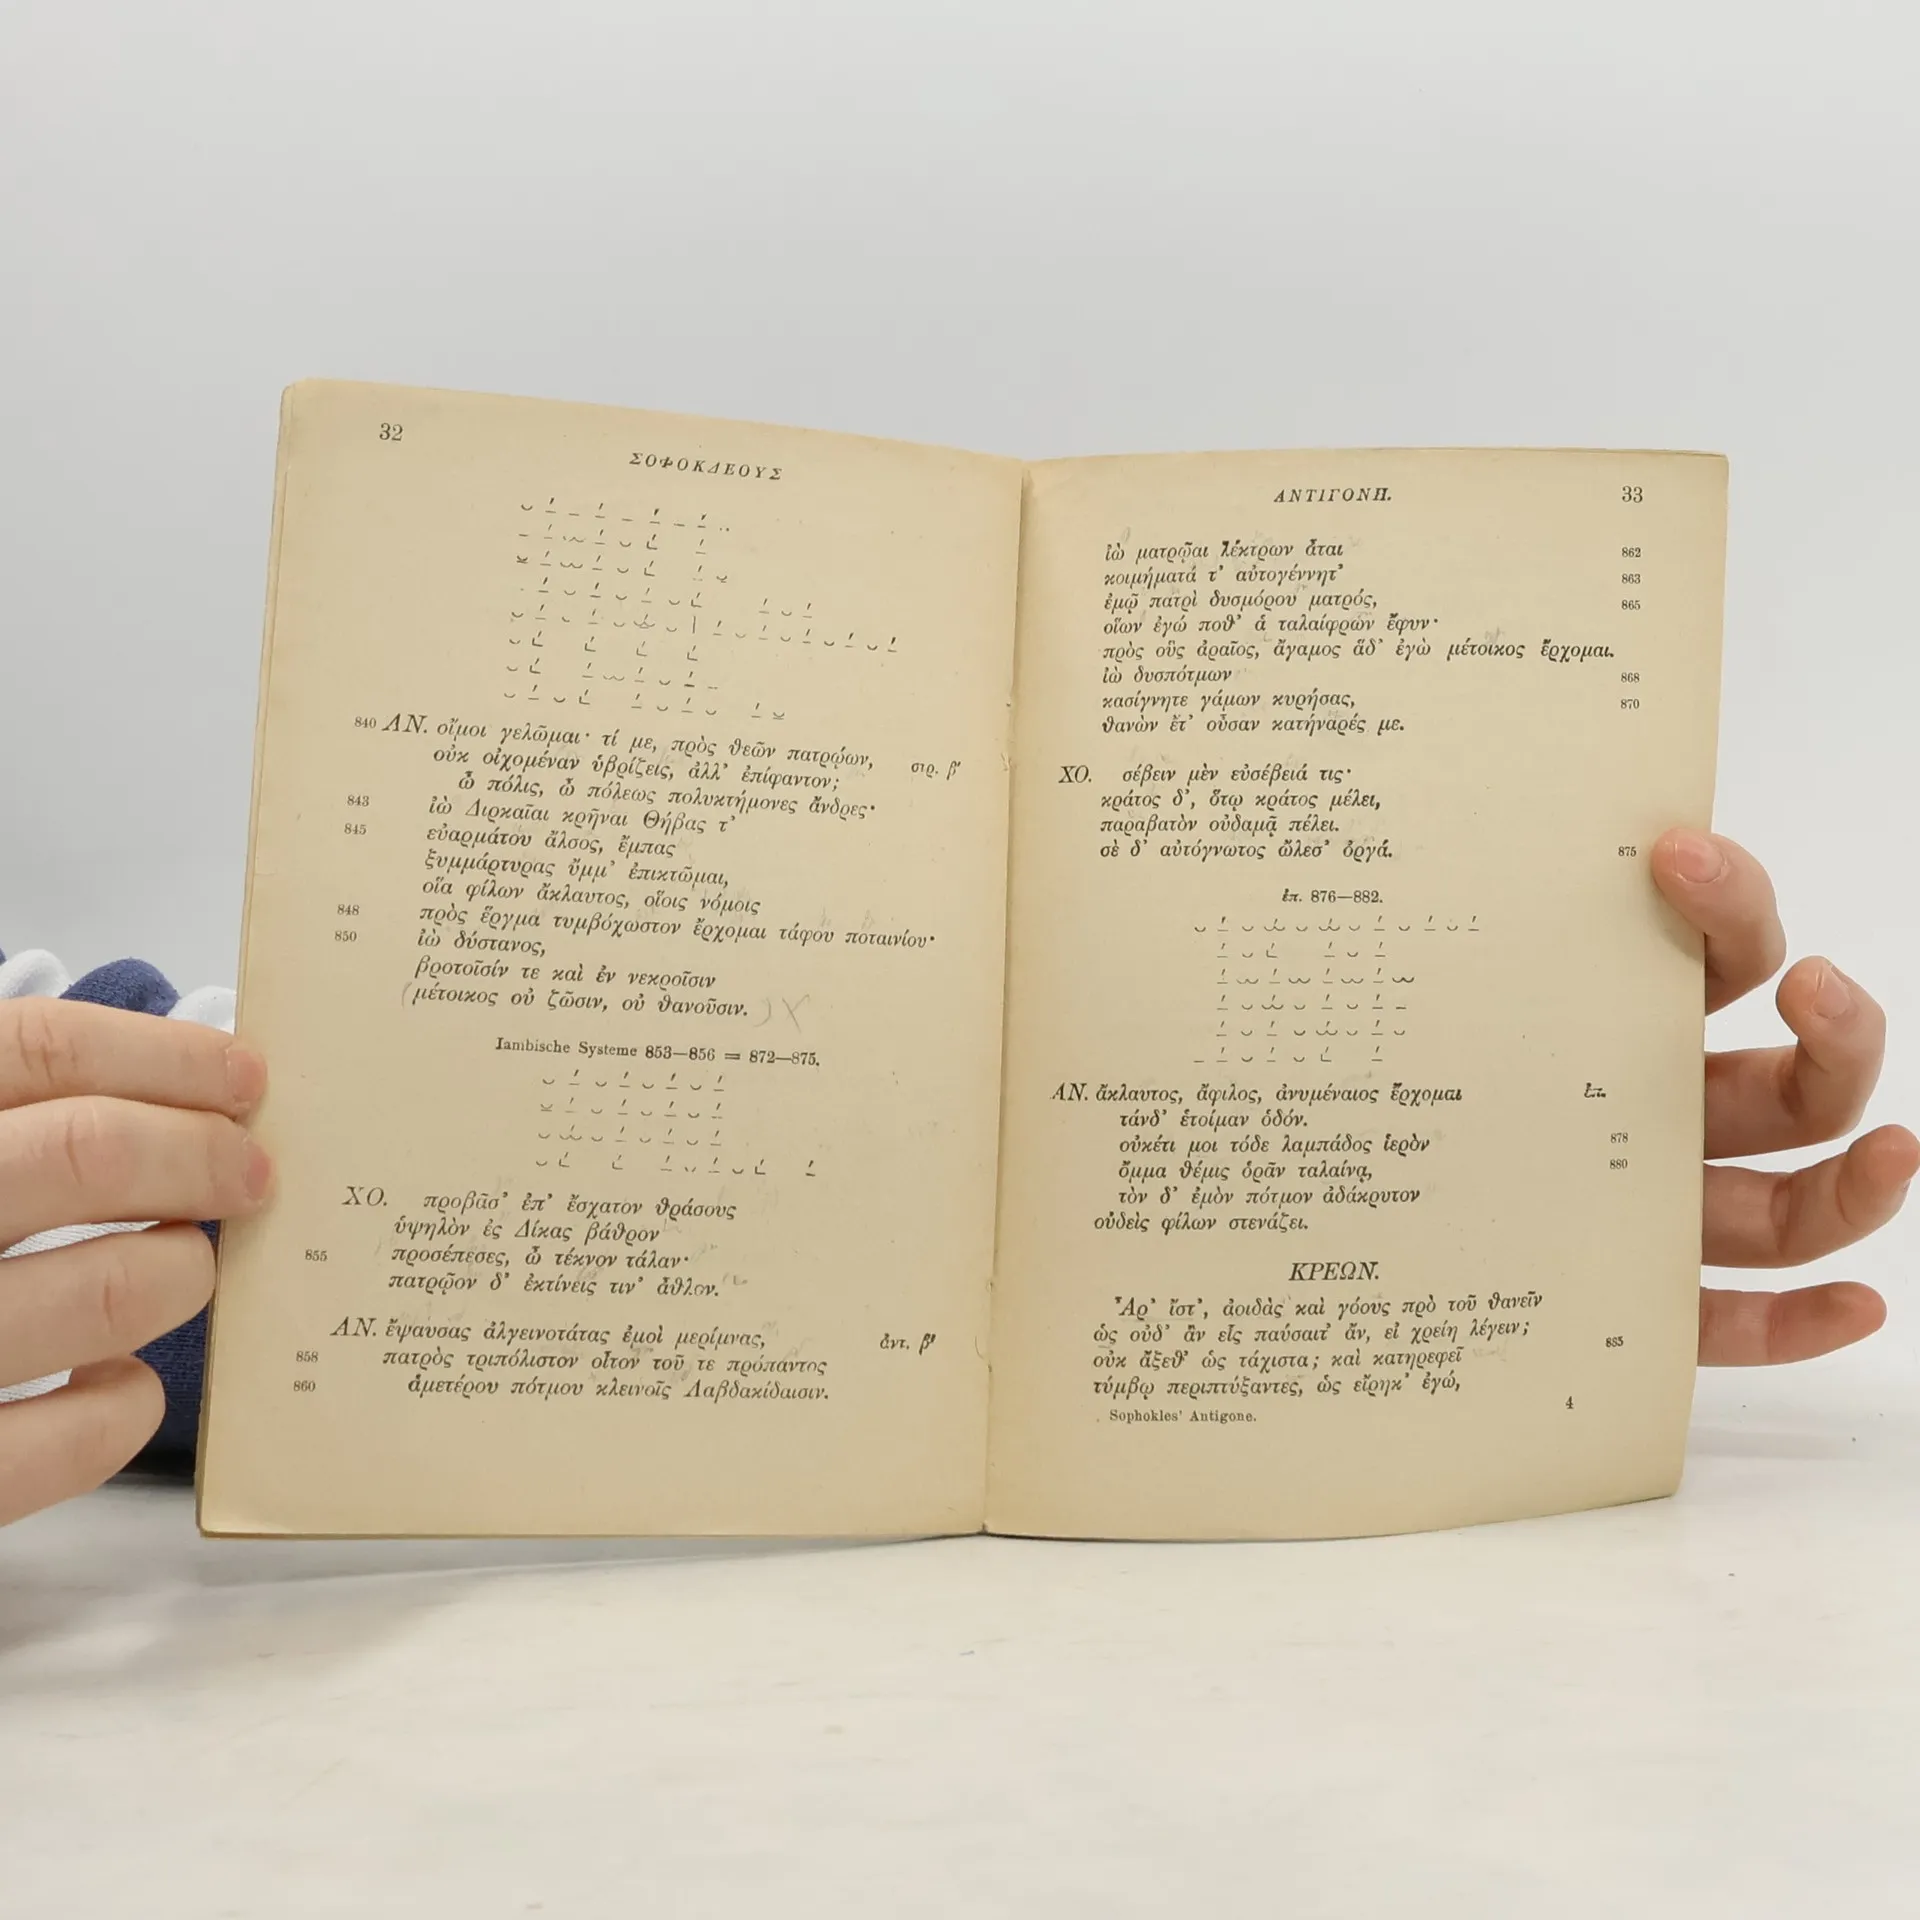 32
ΣΟΦΟΚΛΕΟΥΣ
840 ΑΝ. οἴμοι γελῶμαι· τί με, πρὸς θεῶν πατρῴων, στρ. β'
οὐκ οἰχομέναν ὑβρίζεις, ἀλλ' ἐπίφαντον;
ὦ πόλις, ὦ πόλεως πολυκτήμονες ἄνδρες·
843 ἰὼ Διρκαῖαι κρῆναι Θήβας τ'
845 εὐαρμάτου ἄλσος, ἔμπας
ξυμμάρτυρας ὔμμ' ἐπικτῶμαι,
οἵα φίλων ἄκλαυτος, οἵοις νόμοις
848 πρὸς ἕργμα τυμβόχωστον ἔρχομαι τάφου ποταινίου·
850 ἰὼ δύστανος,
βροτοῖσίν τε καὶ ἐν νεκροῖσιν
μέτοικος οὐ ζῶσιν, οὐ θανοῦσιν.
Iambische Systeme 853—856 = 872—875.
ΧΟ. προβᾶσ' ἐπ' ἔσχατον θράσους
ὑψηλὸν ἐς Δίκας βάθρον
855 προσέπεσες, ὦ τέκνον τάλαν·
πατρῷον δ' ἐκτίνεις τιν' ἆθλον.
ΑΝ. ἔψαυσας ἀλγεινοτάτας ἐμοὶ μερίμνας, ἀντ. β'
858 πατρὸς τριπόλιστον οἶτον τοῦ τε πρόπαντος
860 ἁμετέρου πότμου κλεινοῖς Λαβδακίδαισιν.
ΑΝΤΙΓΟΝΗ. 33
ἰὼ ματρῷαι λέκτρων ἆται 862
κοιμήματά τ' αὐτογέννητ' 863
ἐμῷ πατρὶ δυσμόρου ματρός, 865
οἵων ἐγώ ποθ' ἁ ταλαίφρων ἔφυν·
πρὸς οὓς ἀραῖος, ἄγαμος ἅδ' ἐγὼ μέτοικος ἔρχομαι.
ἰὼ δυσπότμων 868
κασίγνητε γάμων κυρήσας, 870
θανὼν ἔτ' οὖσαν κατήναρές με.
ΧΟ. σέβειν μὲν εὐσέβειά τις·
κράτος δ', ὅτῳ κράτος μέλει,
παραβατὸν οὐδαμᾷ πέλει.
σὲ δ' αὐτόγνωτος ὤλεσ' ὀργά. 875
ἐπ. 876—882.
ΑΝ. ἄκλαυτος, ἄφιλος, ἀνυμέναιος ἔρχομαι ἐπ.
τάνδ' ἑτοίμαν ὁδόν.
οὐκέτι μοι τόδε λαμπάδος ἱερὸν 878
ὄμμα θέμις ὁρᾶν ταλαίνᾳ, 880
τὸν δ' ἐμὸν πότμον ἀδάκρυτον
οὐδεὶς φίλων στενάζει.
ΚΡΕΩΝ.
Ἆρ' ἴστ', ἀοιδὰς καὶ γόους πρὸ τοῦ θανεῖν
ὡς οὐδ' ἂν εἷς παύσαιτ' ἄν, εἰ χρείη λέγειν;
οὐκ ἄξεθ' ὡς τάχιστα; καὶ κατηρεφεῖ 885
τύμβῳ περιπτύξαντες, ὡς εἴρηκ' ἐγώ,
Sophokles' Antigone. 4